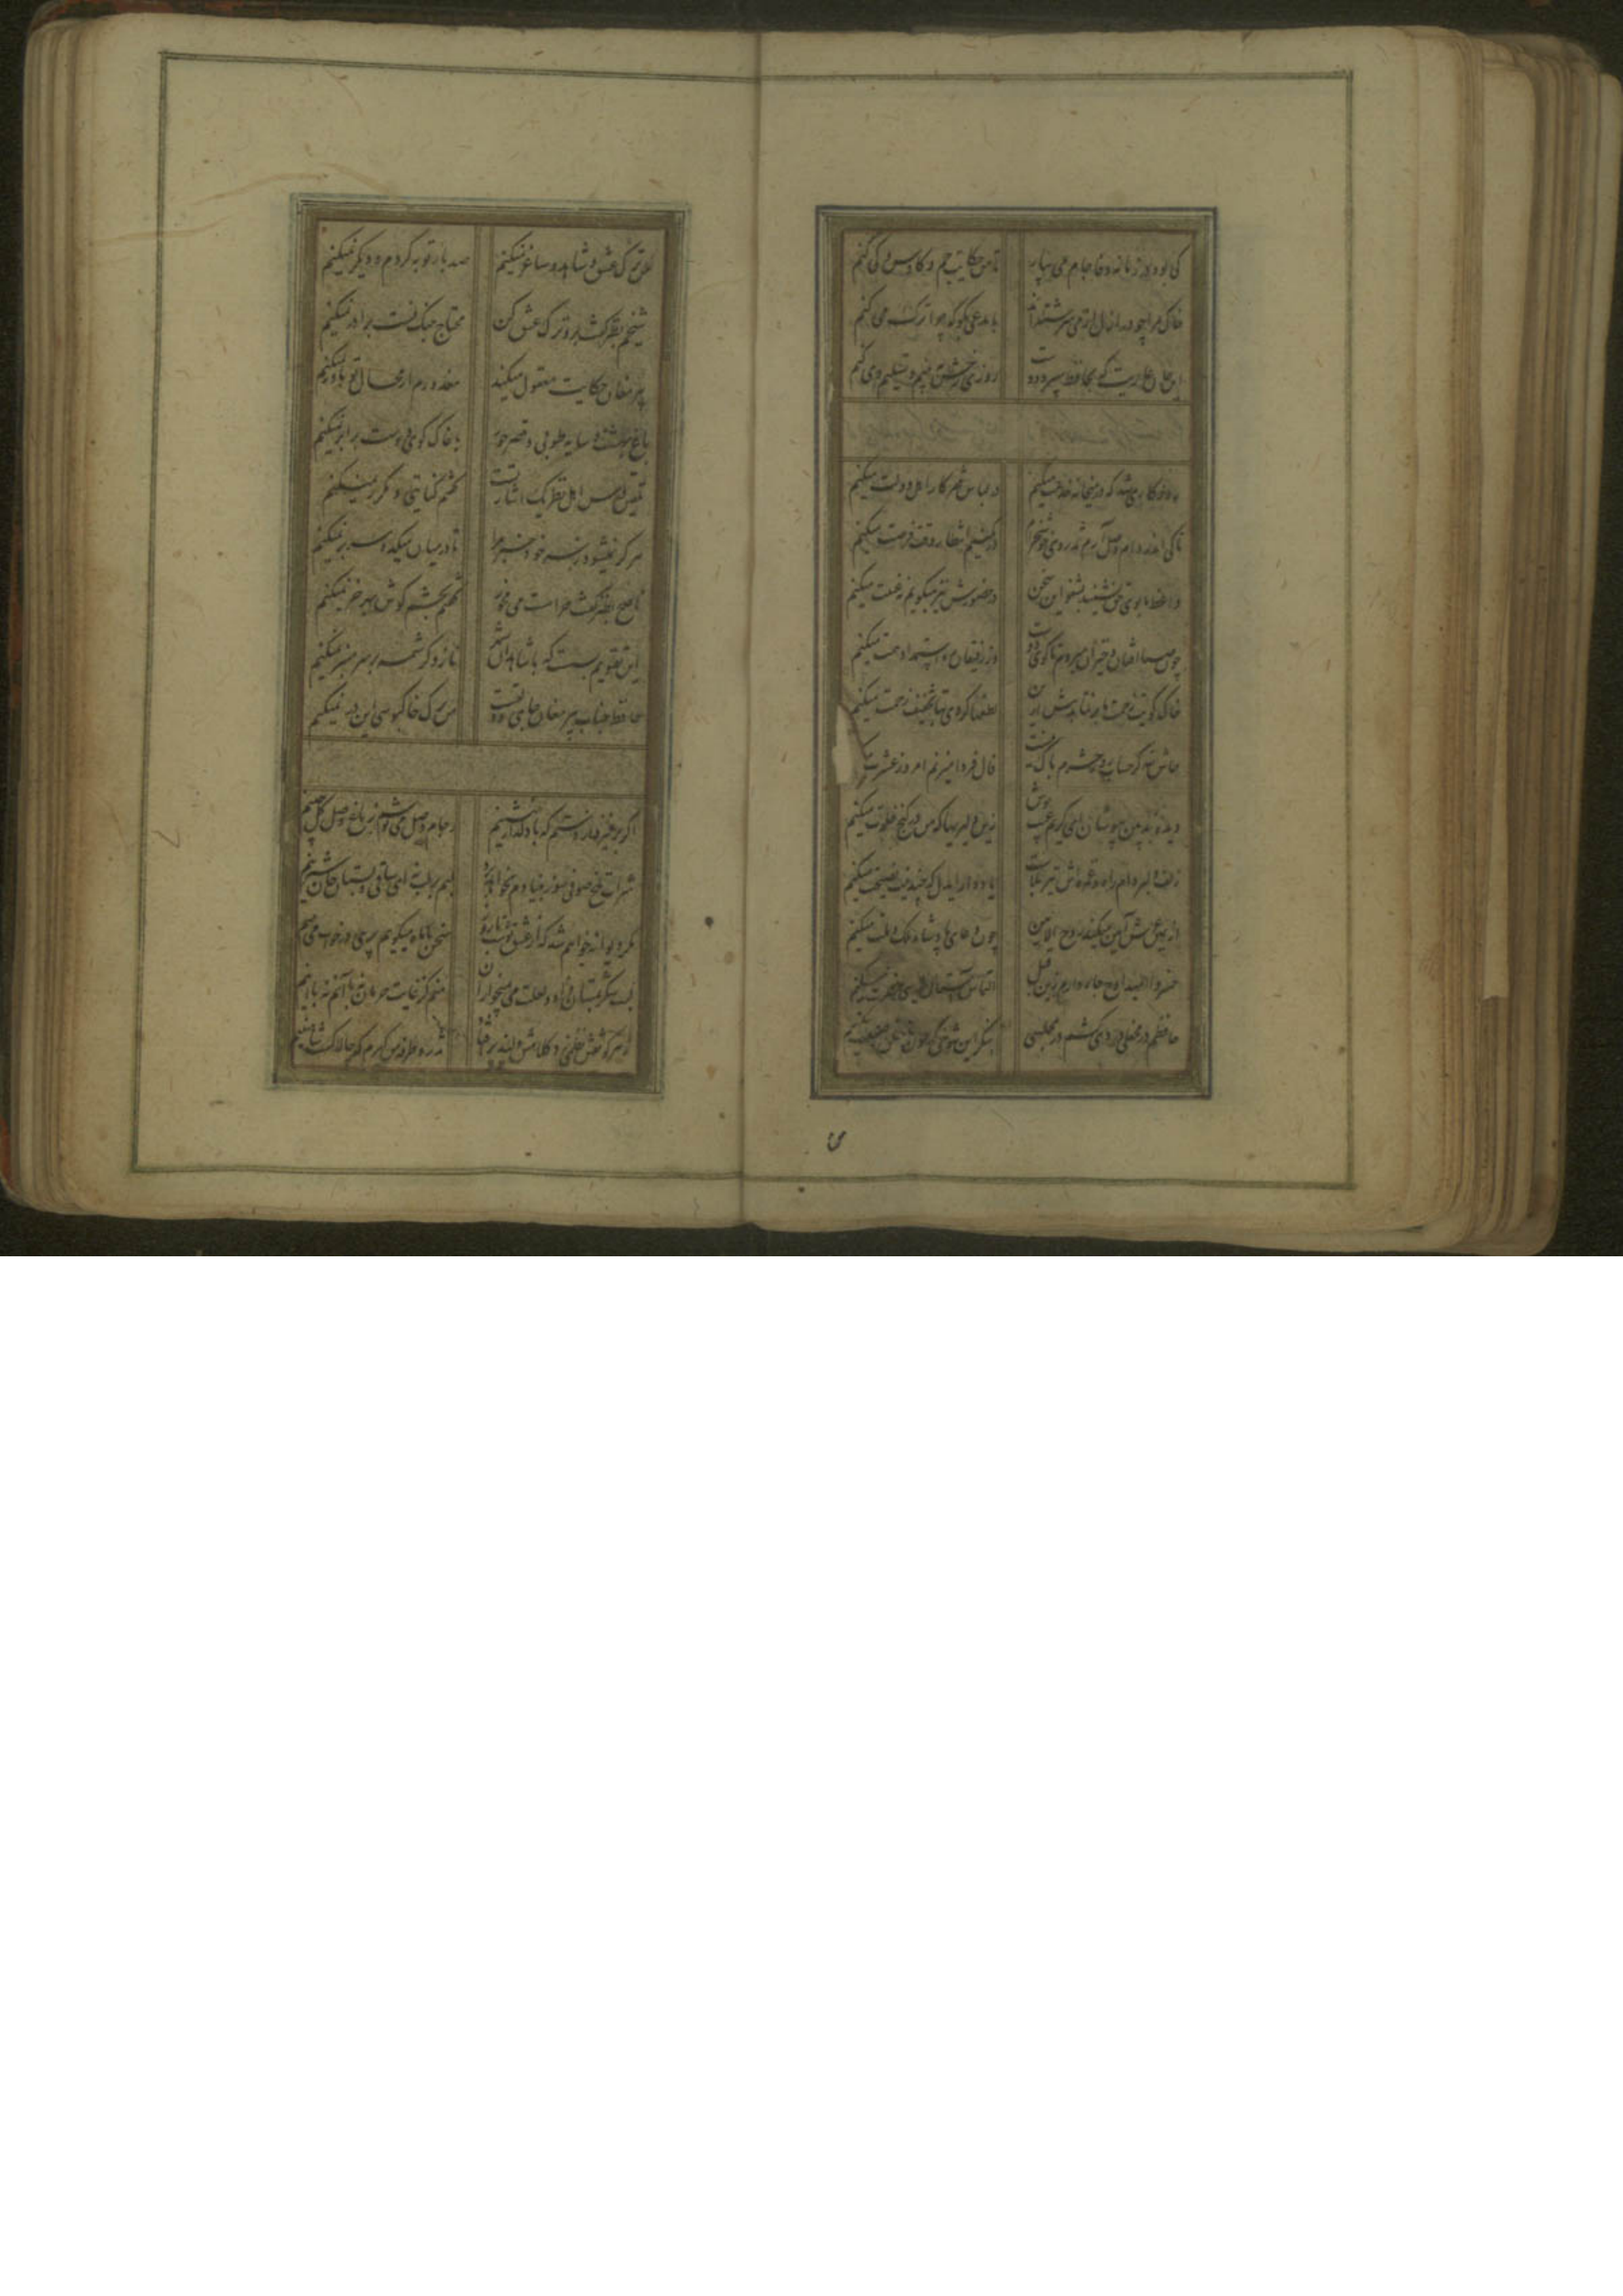 کی بود در زمانه وفا جام می بیار تا من حکایت جم و کاوس و کی کنم
خاک مرا چو در ازل از می سرشته‌اند با مدعی بگو که چرا ترک می کنم
این جان عاریت که بحافظ سپرد دوست روزی رخش ببینم و تسلیم وی کنم
روزگاری شد که در میخانه خدمت میکنم در لباس فقر کار اهل دولت میکنم
تا کی اندر دام وصل آرم تذروی خوش خرام در کمینم انتظار وقت فرصت میکنم
واعظ ما بوی حق نشنید بشنو این سخن در حضورش نیز میگویم نه غیبت میکنم
چون صبا افتان و خیزان میروم تا کوی دوست وز رفیقان ره استمداد همت میکنم
خاک کویت زحمت ما برنتابد بیش ازین لطفها کردی بتا تخفیف زحمت میکنم
حاش لله کز حساب روز حشرم باک نیست فال فردا میزنم امروز عشرت
دیده بدبین بپوشان ای کریم عیب پوش زین دلیریها که من در کنج خلوت میکنم
زلف دلبر دام راه و غمزه‌اش تیر بلاست یاد دار ای دل که چندینت نصیحت میکنم
از یمین عرش آمین میکند روح الامین چون دعای پادشاه ملک و ملت میکنم
خسروا امید اوج جاه دارم زین قبل التماس آستان بوسی حضرت میکنم
حافظم در محفلی دردی کشم در مجلسی بنگر این شوخی که چون با خلق صنعت میکنم
من ترک عشق و شاهد و ساغر نمیکنم صد بار توبه کردم و دیگر نمیکنم
شیخم بطنز گفت برو ترک عشق کن محتاج جنگ نیست برادر نمیکنم
پیر مغان حکایت معقول میکند معذورم ار محال تو باور نمیکنم
باغ بهشت و سایه طوبی و قصر حور با خاک کوی دوست برابر نمیکنم
تلقین و درس اهل نظر یک اشارتست گفتم کنایتی و مکرر نمیکنم
هرگز نمیشود ز سر خود خبر مرا تا در میان میکده سر بر نمیکنم
ناصح بطنز گفت حرامست می مخور گفتم بچشم گوش بهر خر نمیکنم
این تقویم بس است که با شاهدان شهر ناز و کرشمه بر سر منبر نمیکنم
حافظ جناب پیر مغان جای دولتست من ترک خاکبوسی این در نمیکنم
اگر برخیزد از دستم که با دلدار بنشینم ز جام وصل می نوشم ز باغ وصل گل چینم
شراب تلخ صوفی سوز بنیادم بخواهد برد لبم بر لب نه ای ساقی و بستان جان شیرینم
مگر دیوانه خواهم شد که از عشق تو شب تا روز سخن با ماه میگویم پری در خواب می بینم
لبت شکر بمستان داد و چشمت می بمیخواران منم کز غایت حرمان نه با آنم نه با اینم
نه هر کو نقش نظمی زد کلامش دلپذیر افتد تذرو طرفه من گیرم که چالاکست شاهینم